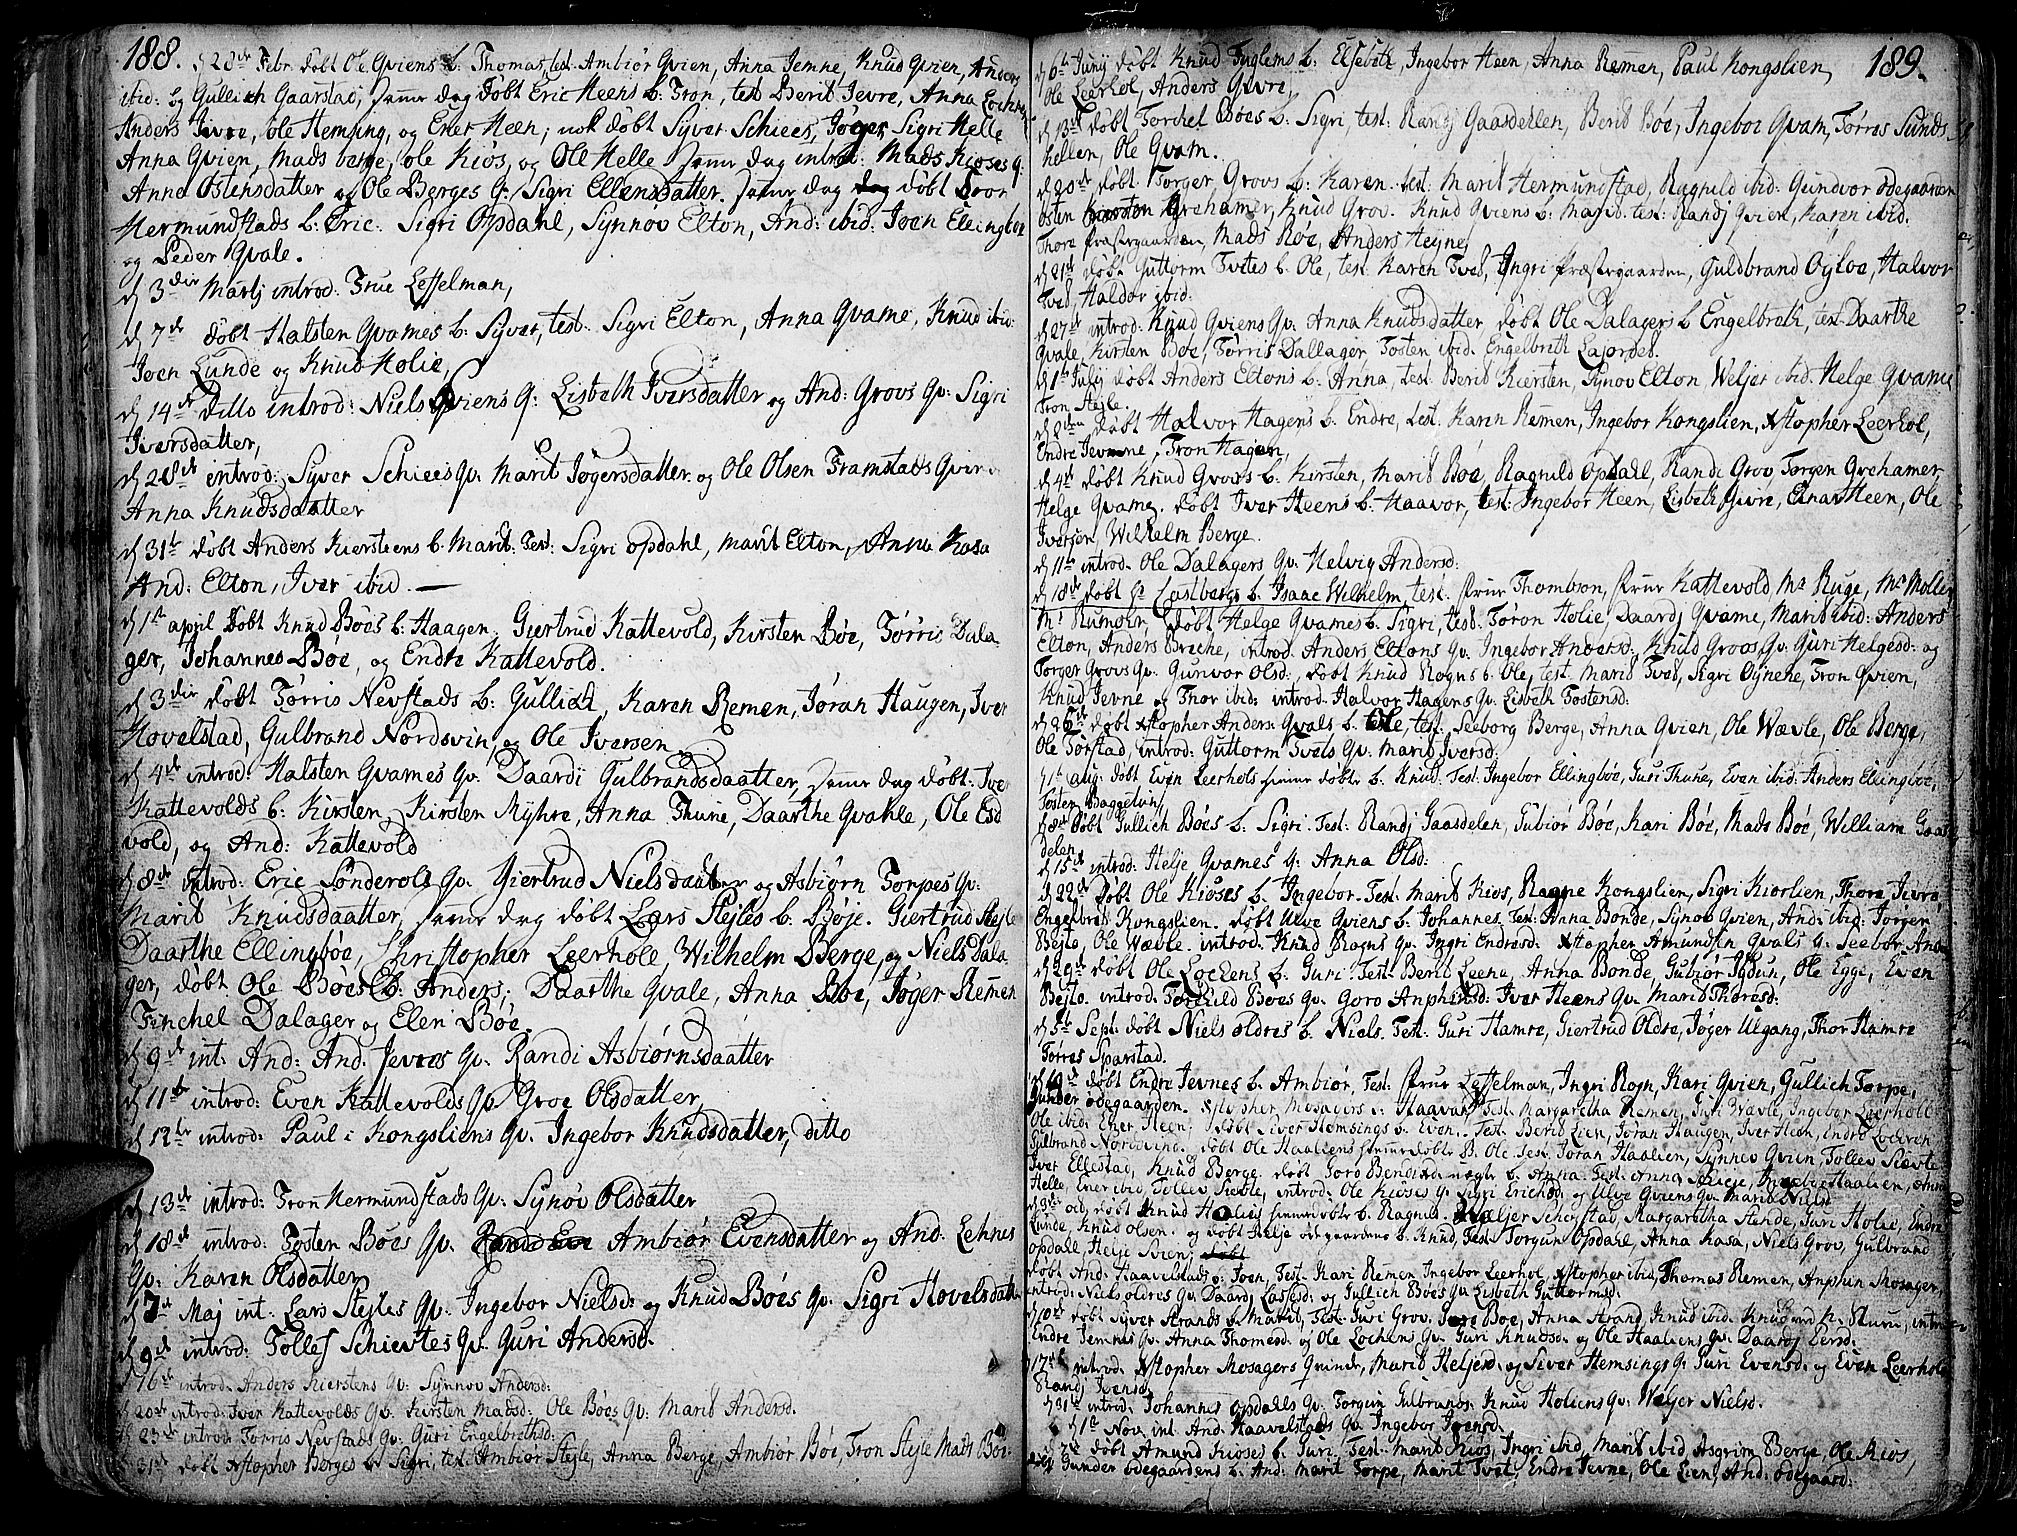 188.
d 28de Febr. döbt Ole Qviens b: Thomas, test. Ambiör Qvien, Anna Jemne, Knud Qvien, Anders
ibid: og Gullich Gaarstad, samme dag döbt Eric Heens b: Tron, test Berit Jevre, Anna
Anders Jevre, Ole Hemsing, og Ener Heen; nok döbt Syver Schiees, Jöger, Sigri Helle
Anna Qvien, Mads berge, ole Kiös, og Ole Helle samme dag introd: Mads Kioses q:
Anna Ostensdatter og Ole Berges Q: Sigri Ellensdatter. samme dag döbt
Hermundstads b: Eric. Sigri Opdahl, Synnov Elton, And: ibid: Joen Ellingboe
og Peder Qvale.
d 3die Martj introd: Frue Leffelman,
d 7de döbt Halsten Qvames b: Syver, test: Sigri Elton, Anna Qvame, Knud ibid:
Joen Lunde og Knud Holie,
d 14de Ditto introd: Niels Qviens Q: Lisbeth Iversdatter og And: Grovs Qv: Sigri
Iversdatter,
d 28de introd: Syver Schiees Qv: Marit Jögersdatter og Ole Olsen Framstads Qv:
Anna Knudsdaatter
d 31te döbt Anders Kiersteens b. Marit: Test: Sigri Opdahl, Marit Elton, Anna Kasa
And: Elton, Iver ibid —
d 1ste april döbt Knud Böes b: Haagen, Giertrud Kattevold, Kirsten Böe, Törris Dala
ger, Johannes Böe, og Endre Kattevold.
d 3die döbt Törris Nevstads b: Gullich, Karen Remen, Jöran Haugen, Iver
Hovelstad, Gulbrand Nordsvin, og Ole Iversen
d 4de introd: Halsten Qvames Qv: Daardi Gulbrandsdaatter, samme dag döbt: Iver
Kattevolds b: Kirsten, Kirsten Myhre, Anna Thune, Daarthe Qvahle, Ole Esd
vold, og And: Kattevold
d 8de introd: Eric Sönderols Qv: Giertrud Nielsdaatter og Asbiörn Torpes Qv:
Marit Knudsdaatter, samme dag döbt Lars Stejles b: Böje. Giertrud Stejle
Daarthe Ellingböe, Christopher Leerhole, Wilhelm Berge, og Niels Dala
ger, döbt Ole Böes b: Anders; Daarthe Qvale, Anna Böe, Jöger Remen
Finchel Dalager og Elen Böe.
d 9de int: And: And: Jevnes Qv: Randi Asbiörnsdaatter
d 11te introd: Even Kattevolds Qv Groe Olsdatter,
d 12te introd: Paul i Kongsliens Qv: Ingebor Knudsdatter, ditto
d 13de introd: Tron Hermundstads Qv: Synöv Olsdatter
d 18de introd: Tosten Böes Qv. Ambiör Evensdatter og And: Lehnes
Qv: Karen Olsdatter
d 7de Maj int: Lars Stejles Qv: Ingebor Nielsd: og Knud Böes Qv: Sigri Hovelsdatt
d 9de introd: Tollef Schiertes Qv: Guri Andersd.
d 16de introd. Anders Kierstens Qv: Synnov Andersd:
d 20de introd: Iver Kattevolds Qv: Kirsten Madsd: Ole Böes Qv: Marit Andersd.
d 23de introd: Torris Nevstads Qv: Guri Engelbrethsd:
d 31te döbt Xstopher Berges b: Sigri, test Ambiör Stejle, Anna Berge, Ambiör Böe, Tron Stejle Mads Böe
189.
d 6te Junij döbt Knud Fuglems b: Elsebeth, Ingebor Heen, Anna Remen, Paul Kongslien,
Ole Leerhol, Anders Givre,
d 13de döbt Torchel Böes b: Sigri, test: Randj Gaasdellen, Berit Böe, Ingebor Qvam, Törres Sunds
hellen, Ole Qvam.
d 20de döbt Torger Grovs b: Karen. test: Marit Hermundstad, Ragnuld ibid: Gundvor ödegaarden
Osten Grehamer, Knud Grov. Knud Qviens b: Marit. test: Randj Qvien, Karen ibid.
Thore præstegaarden, Mads Böe, Anders Heyne,
d 21de döbt Guttorm Tvetes b: Ole, test: Karen Tved, Ingri Præstegaarden, Guldbrand Öyloe, Halvor
Tved, Haldor ibid:
d 27de introd: Knud Qviens Qv: Anna Knudsdatter, döbt Ole Dalagers b Engelbreth, test Daarthe
Qvale, Kirsten Böe, Törris Dallager, Tosten ibid. Engelbreth Lajordet.
d 1ste Julij döbt Anders Eltons b: Anna, test: Berit Kiersten, Synov Elton, Weljer ibid. Helge Qvame
Tron Stejle.
d 2den döbt Halvor Hagens b: Endre, test. Karen Remen, Ingebor Kongslien, Xstopher Leerhol,
Endre Jevne, Tron Hagen,
d 4de döbt Knud Grovs b. Kirsten, Marit Böe, Ragnuld Opdall, Randi Grov, Torgen Grehamer,
Helge Qvame. döbt Iver Heens b: Haavor, test: Ingebor Heen, Lisbeth Givre, Einar Heen, Ole
Iversen, Wilhelm Berge.
d 11te introd. Ole Dalagers Qv: Helvig Andersd:
d 18de döbt Castbergs b. Isaac Wilhelm, test. frue Thombson, frue Kattevold, Mr Ruge, Mr Moller,
Mr Rumohr, döbt Helge Qvames b. Sigri, test. Töron Holie, Daardj Qvame, Marit ibid: Anders
Elton, Anders Breche, introd. Anders Eltons Qv: Ingebor Andersd: Knud Groos Qv: Guri Helgesd: og
Torger Groos Qv: Gunvor Olsd: döbt Knud Rogns b: Ole, test: Marit Tved, Sigri Öynehe, Tron Qvien,
Knud Jevne og Thor ibid: introd. Halvor Hagens Qv: Lisbeth Tostensd:
d 26de döbt Xstopher Anders: Qvals b. Ole, test: Seeborg Berge, Anna Qvien, Ole Wævle, Ole Berge,
Ole Törstad, introd: Guttorm Tvets Qv: Marit Iversd:
d 1te aug: döbt Even Leerhols b. Knud. Test: Ingebor Ellingböe, Guri Thune, Even ibid: Anders Ellingböe,
Tosten Baggetvin,
d 8de döbt Gullich Böes b: Sigri. Test: Randj Gaasdelen, Gubiör Böe, Kari Böe, Mads Böe, William Gaas
delen
d 15de introd: Helje Qvames Q: Anna Olsd:
d 22de döbt Ole Kioses b. Ingebor. Test: Marit Kiös, Ragne Kongslien, Sigri Kiorlien, Thore Jevre,
Engelbret Kongslien. döbt Ulve Qviens b: Johannes, Test: Anna Bonde, Synöv Qvien, And: ibid: Jörgen
Bejte, Ole Wævle. introd: Knud Rogns Qv: Ingri Endresd: Xstopher Amundsen Qvals Q: Seebor And
d 29de döbt Ole Lochens b: Guri. Test: Berit Leene, Anna Bonde, Gubiör Jydun, Ole Egge, Even
Bejto. introd. Torchild Böes Qv: Goro Anphinsd: Iver Heens Qv: Marit Thoresd:
d 5te Sept: döbt Niels oldres b. Niels. Test: Guri Hamre, Giertrud Oldre, Jöger Ulgang, Thor Hamre
Törres Sparstad.
döbt Endre Jevnes b. Ambiör, Test: frue Leffelman, Ingri Rogn, Kari Qvien, Gullich Torpe,
Gunder ödegaarden. Xstopher Mosagers b: Haavar, Test: Margaretha Remen, Guri Wævle, Ingebor Leerhol
Ole ibid: Ener Heen; döbt Siver Hemsings b: Even. Test: Berit Lien, Jöran Haugen, Iver Heen, Endre
Gulbrand Nordsvind. döbt Ole Haaliens b. Ole. Test: Jöran Haalien, Synnev Qvien, Tollev Siævte
Iver Ellestad, Knud Berge. döbt b. Anna. Test: Anna
Helle, Ener ibid, Tollev Sievle, introd. Ole Kioses Q: Sigri Erichsd: og Ulve Qviens Qv: Marit Nielsd:
döbt Knud b: Ragnild. Weljer Margaretha Stende, Guri Holie, Endre
Lunde, Knud Olsen. og döbt Helje ödegaardens b. Knud, Test: Torgun Opdahl, Anna Kasa, Niels Grov, Gulbrand
Opdahl, Helje
döbt And: Haavelstads b: Joen, Test: Kari Remen, Ingebor Leerhol, Xstopher ibid, Thomas Remen, Anphin Mosager,
introd: Niels oldres Qv: Daard: Lassesd: og Gullich Böes Qv Lisbeth Guttormsd:
d 10de döbt Syver Strands b. Marit, Test: Guri Grov, Böe, Anna Strand, Knud ibid. Knud
Endre Jemnes Qv: Anna Thomesd: og Ole Lochens Qv: Guri Knudsd: og Ole Haaliens Qv: Daardj Eersd:
17de introd. Xstopher Mosagers Qvinde, Marit Heljesd: og Siver Hemsings Q: Guri Evensd: og Even Leerhols
Randj Iversd:
d 31te introd: Johannes opdalls Qv: Torgun Gulbrands: Knud Holiens Qv: Weljer Nielsd.
d 1te Nov. int. And: Haavelstads Qv: Ingebor Iversd:
d 7de döbt Amund Kioses b: Guri, Test: Marit Kiös, Ingri ibid, Marit ibid, Asgrim Berge, Ole Kiös,
Gunder ödegaardens b. And: Marit Torpe, Marit Tvet, Endre Jevne, Ole Lien, And: ödegaard: